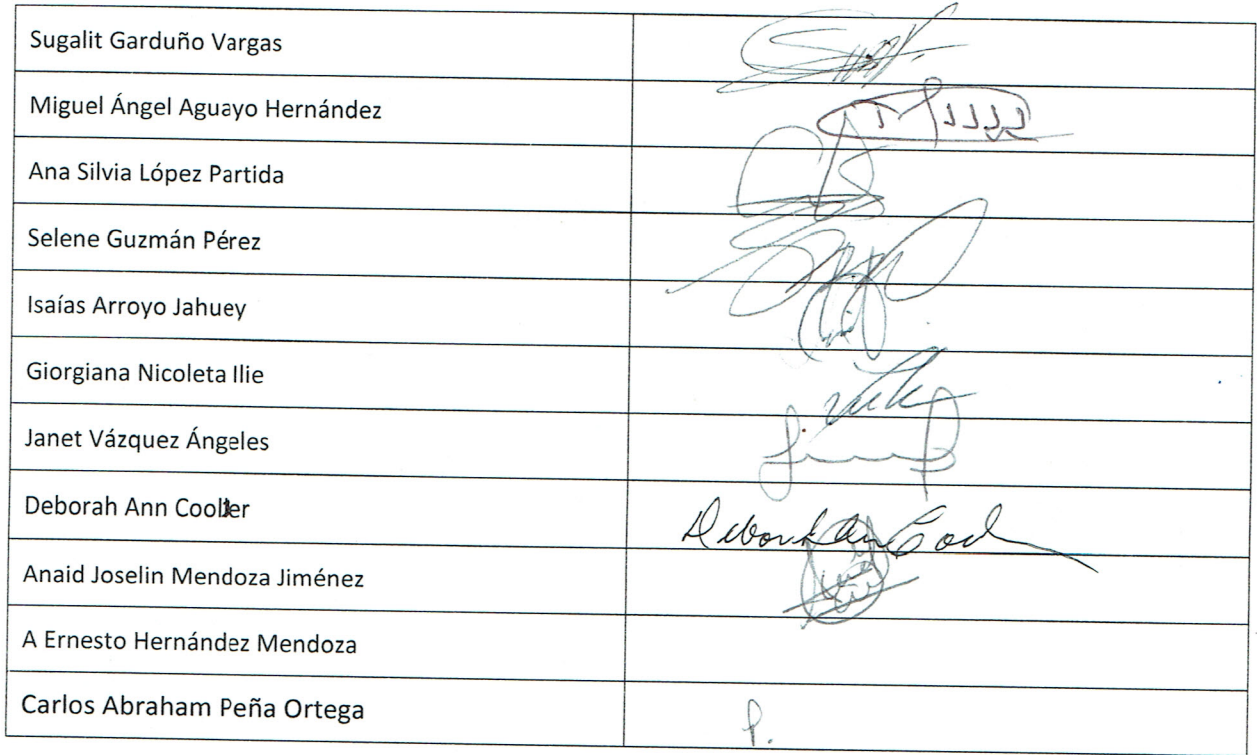 Sugalit Garduño Vargas
Miguel Ángel Aguayo Hernández
Ana Silvia López Partida
Selene Guzmán Pérez
Isaías Arroyo Jahuey
Giorgiana Nicoleta Ilie
Janet Vázquez Ángeles
Deborah Ann
Deborah Ann
Anaid Joselin Mendoza Jiménez
A Ernesto Hernández Mendoza
Carlos Abraham Peña Ortega P.